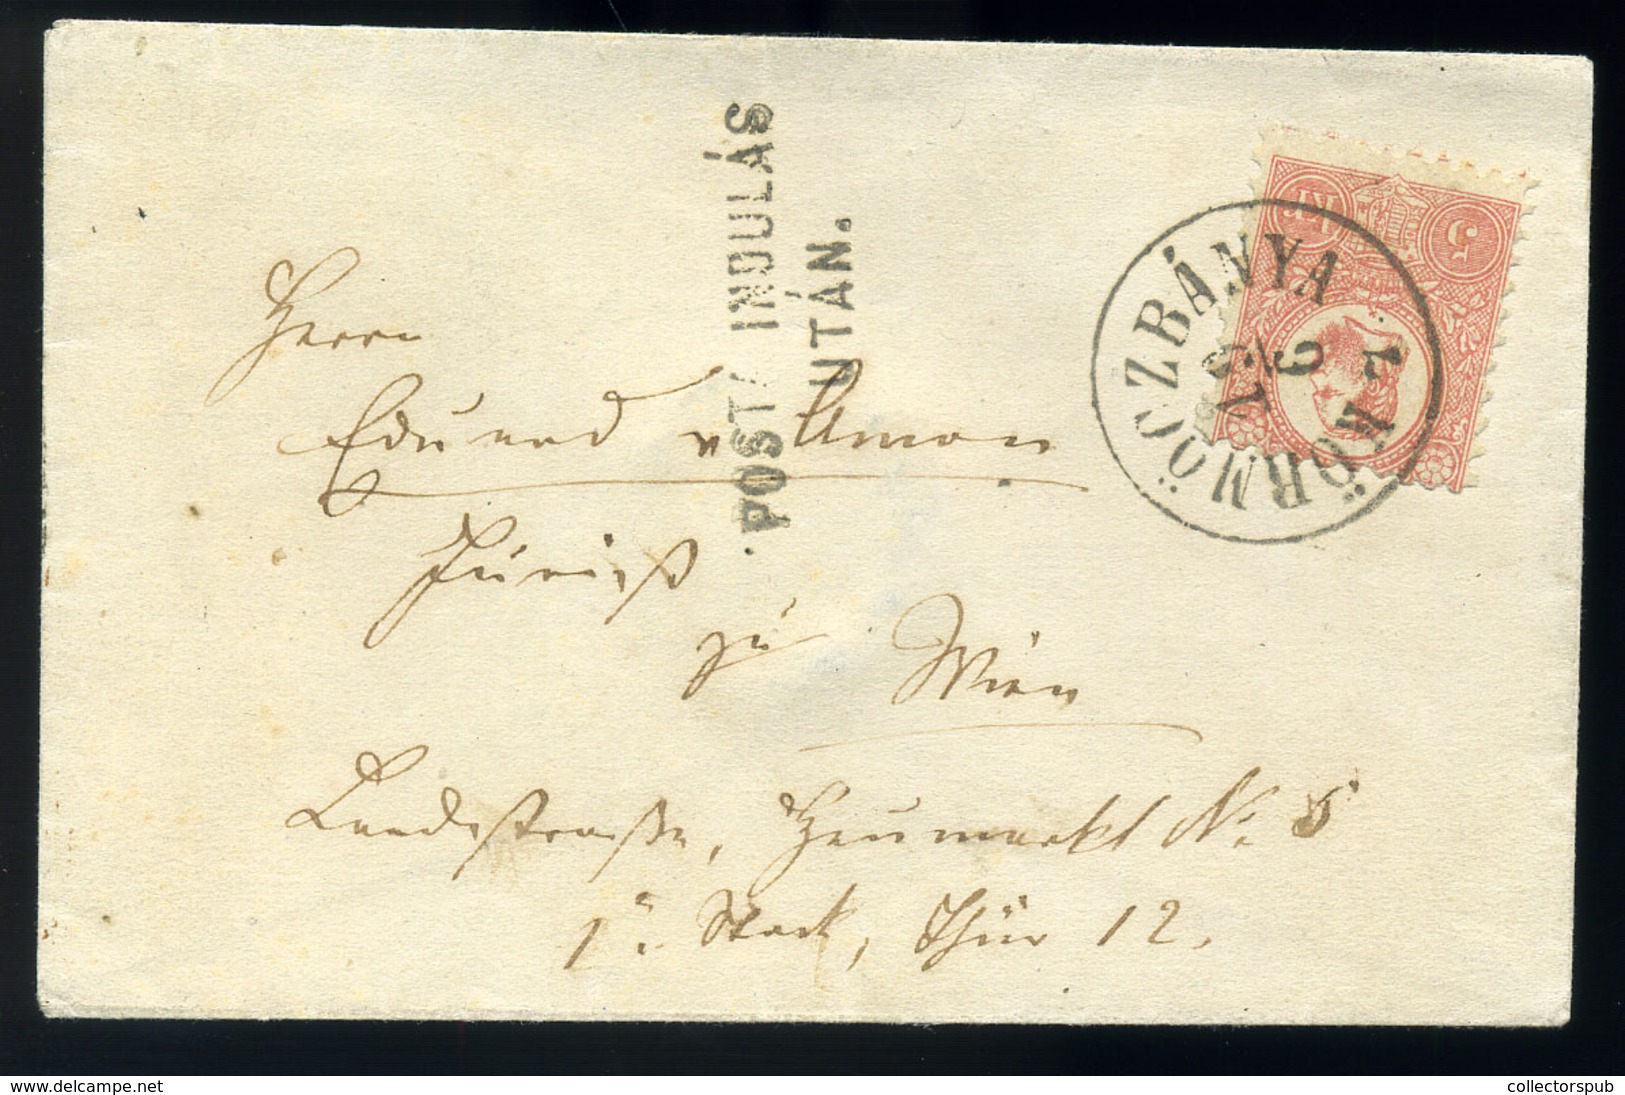 POSTA INDULÁS
UTÁN.
5 KR
KÖRMÖCZBÁNYA
Herrn
Eduard v Amon
Jurist
zu Wien
Landstraße, Heumarkt No 5
1r. Stock, Thür 12.
www.delcampe.net
collectorspub